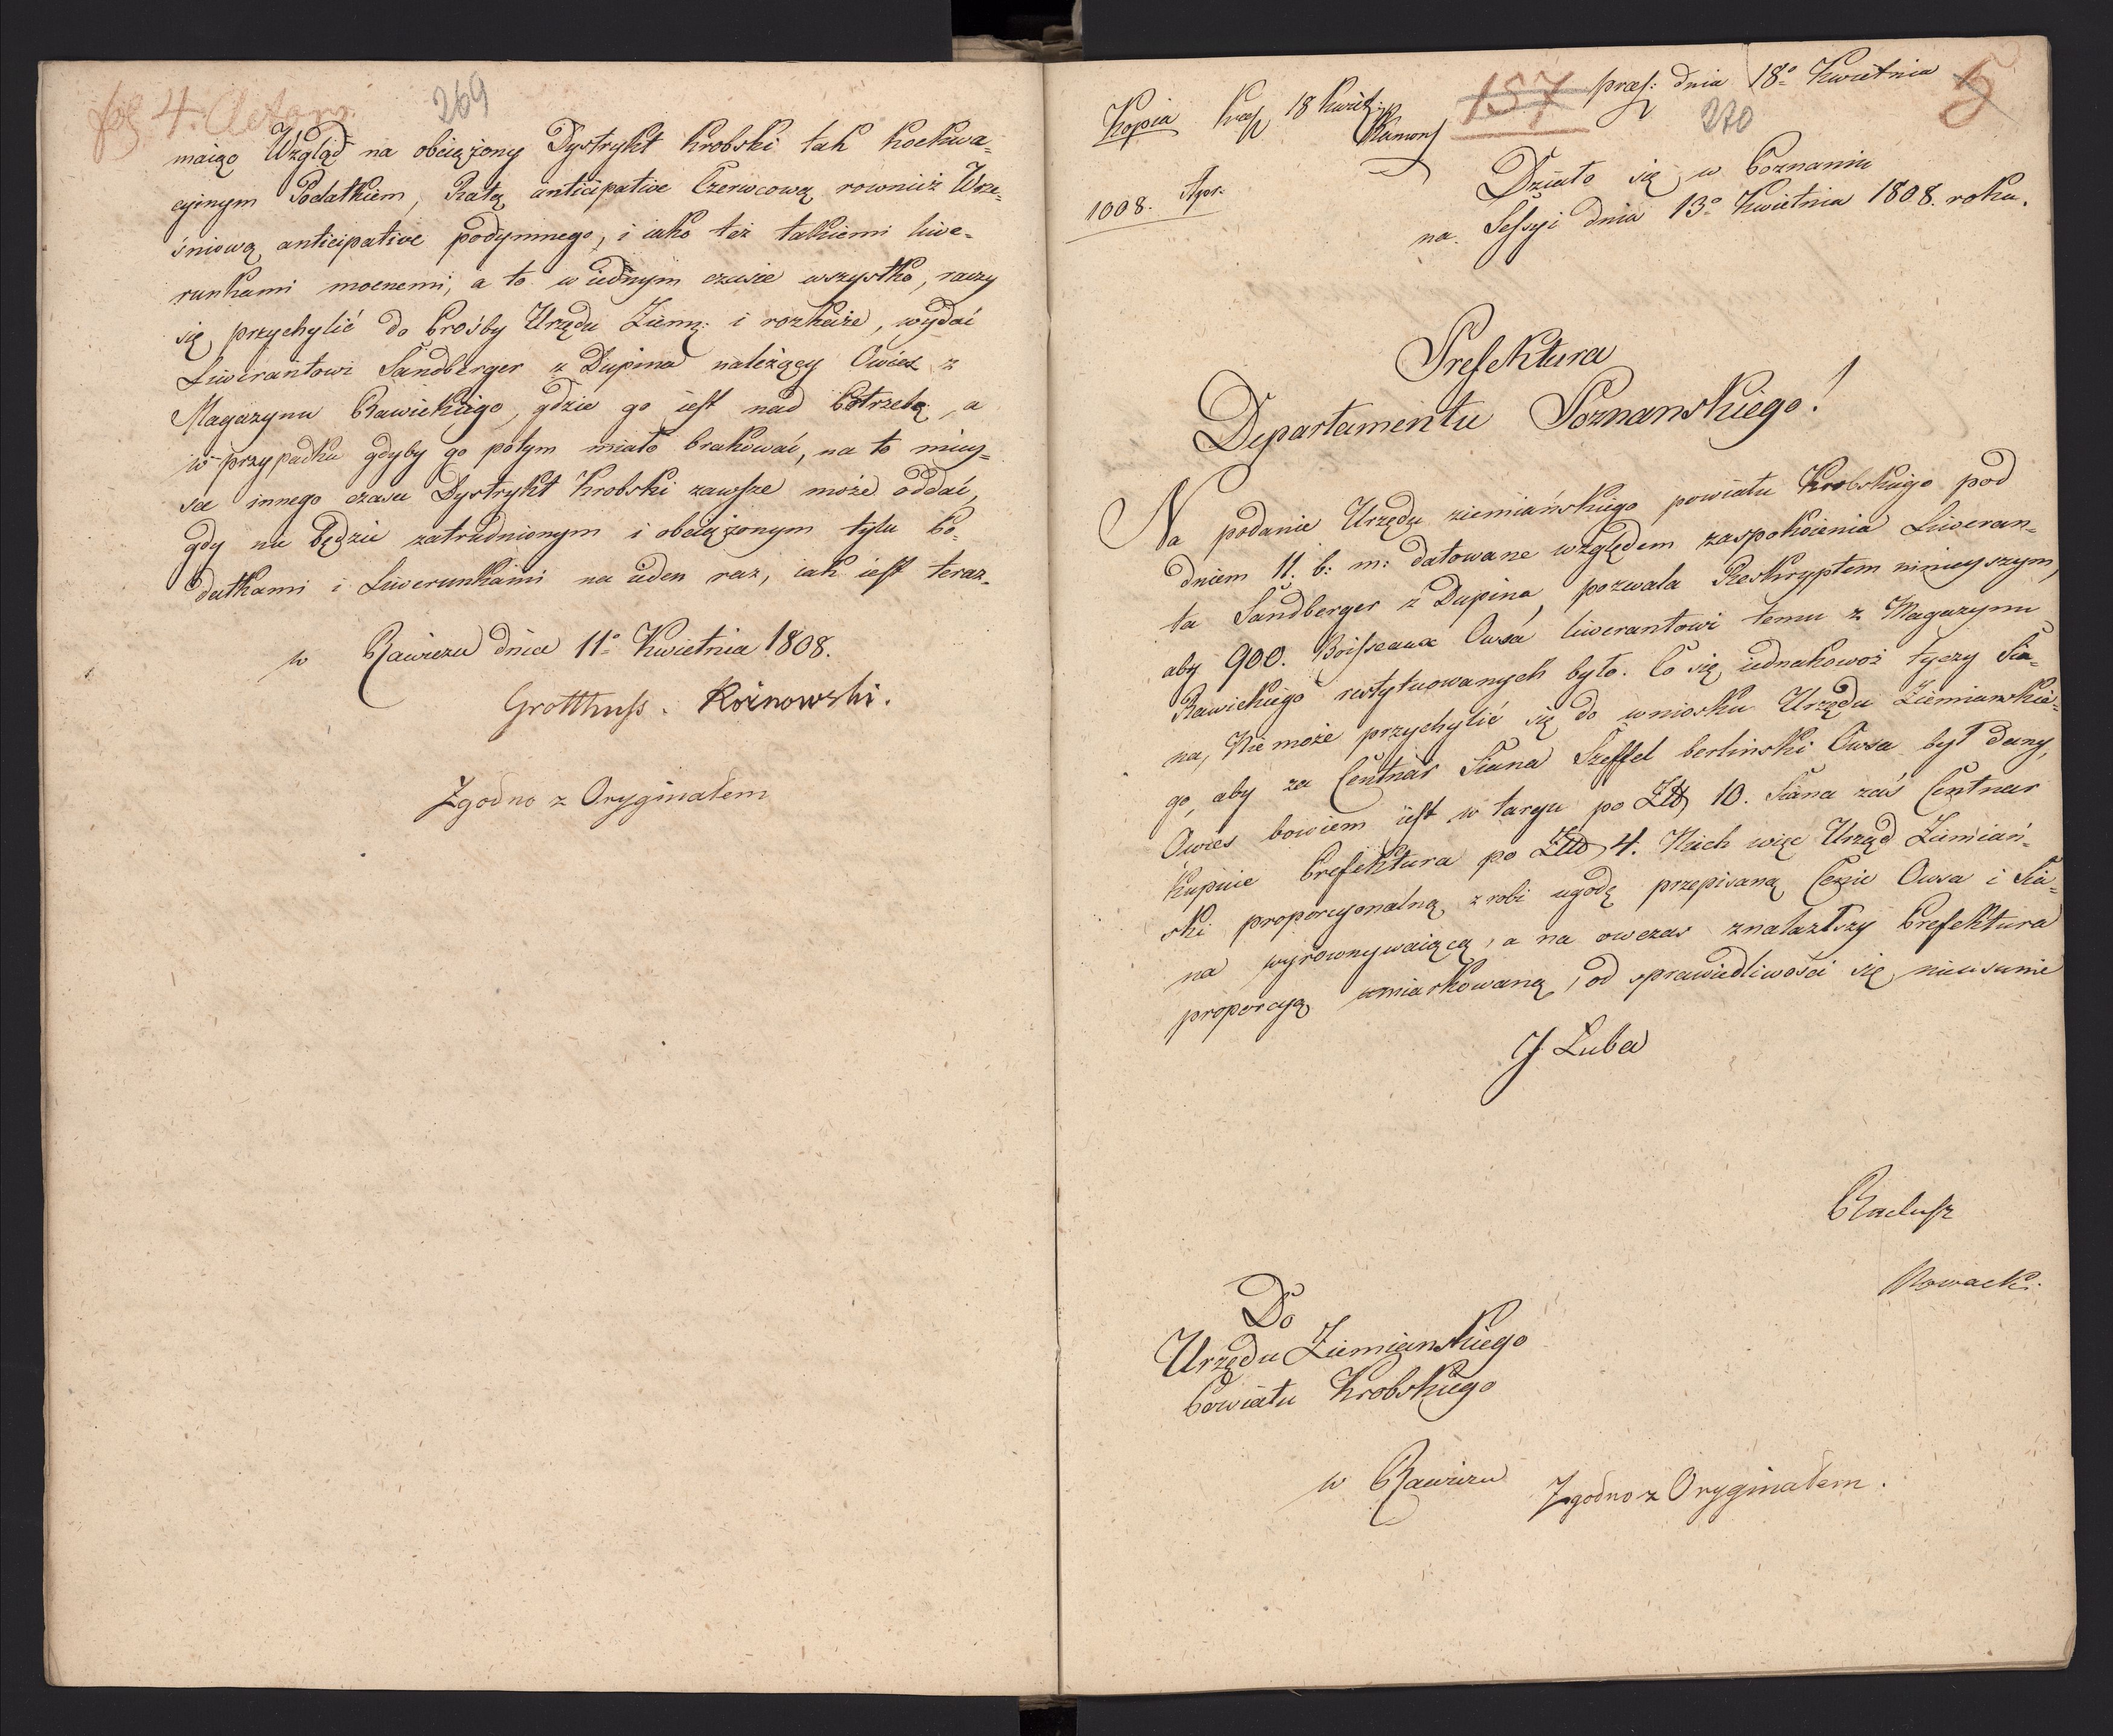 fol 4. Actor.
269
maiąc Wzgląd na obciążony Dystrykt Krobski tak koekwa-
cyinym Podatkiem, Ratą anticipative Czerwcową rownież Wrze-
śniową anticipative podymnego, i iako też takiemi liwe-
runkami mocnemi, a to w iednym czasie wszystko, raczy
się przychylić do Prośby Urzędu Ziemz: i rozkaże, wydać
Liwerantowi Sandberger z Dupina należący Owies z
Magazynu Rawickiego, gdzie go iest nad Potrzebę, a
w przypadku gdyby go potym miało brakować, na to miey-
sce innego czasu Dystrykt Krobski zawsze może oddać,
gdy nie będzie zatrudnionym i obciążonym tylu Po-
datkami i Liwerunkami na ieden raz, iak iest teraz.
w Rawiczu dnia 11o Kwietnia 1808.
Grotthuss. Koźnowski.
Zgodno z Oryginałem
Kopia
Præs 18 Kwiet:
157
præs: dnia 18o Kwietnia
5
270
1008. Apr.
Działo się w Poznaniu
na Sessyi dnia 13o Kwietnia 1808. roku.
Prefektura
Departamentu Poznanskiego!
Na podanie Urzędu ziemiańskiego powiatu Krobskiego pod
dniem 11. b: m: datowane względem zaspokoienia Liweran-
ta Sandberger z Dupina, pozwala Reskryptem ninieyszym,
aby 900. Boisseaux Owsa liwerantowi temu z Magazynu
Rawickiego restytuowanych było. Co się iednakowoż tyczy Sia-
na, Nie może przychylić się do wniosku Urzędu Ziemianskie-
go, aby za Centnar Siana Szeffel berlinski Owsa był dany,
Owies bowiem iest w targu po Złł 10. Siana zaś Centnar
kupuie Prefektura po Złł 4. Niech więc Urząd Ziemiań-
ski proporcyonalną zrobi ugodę przepisaną Cenie Owsa i Sia-
na wyrownywaiącą, a na owczas znalazłszy Prefektura
proporcyą umiarkowaną, od sprawiedliwości się nieusunie
J. Łuba
Radusz
Nowacki.
Do
Urzędu Ziemianskiego
Powiatu Krobskiego
w Rawiczu
Zgodno z Oryginałem.